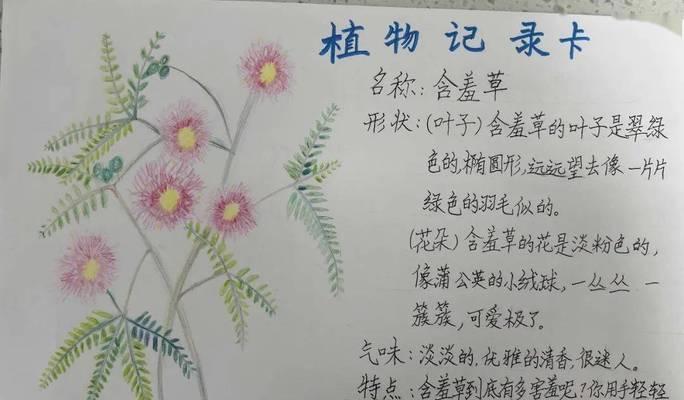 植物记录卡
名称：含羞草
形状：(叶子)含羞草的叶子是翠绿
色的,椭圆形,远远望去像一片片
绿色的羽毛似的。
(花朵)含羞草的花是淡粉色的，
像蒲公英的小绒球，一丛丛一
簇簇，可爱极了。
气味：淡淡的,优雅的清香,很迷人。
特点：含羞草到底有多害羞呢?你用手轻轻